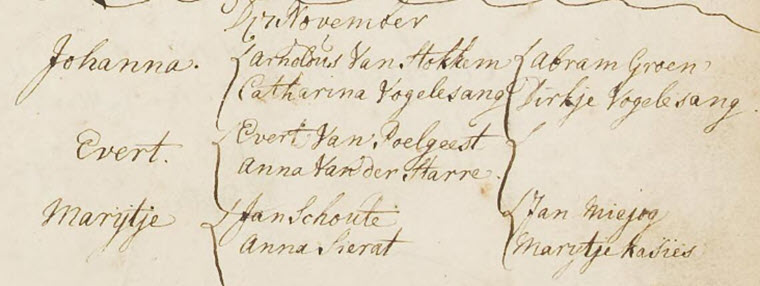 D 17 November
Johanna. Arnoldus Van Stokkem Abram Groen
Catharina Vogelesang Dirkje Vogelesang.
Evert. Evert Van Poelgeest
Anna Van der Starre.
Marijtje Jan Schoute Jan
Anna Sierat Marijtje